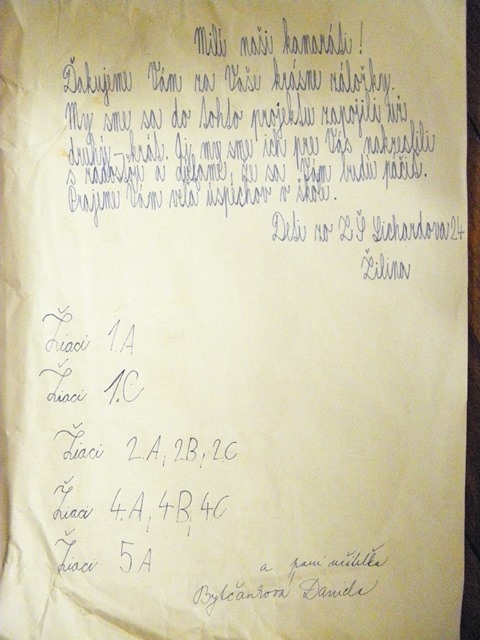 Milí naši kamaráti!
Ďakujeme Vám za Vaše krásne záložky.
My sme sa do tohto projektu zapojili už
druhý krát. Aj my sme ich pre Vás nakreslili
s radosťou a dúfame, že sa Vám budú páčiť.
Prajeme Vám veľa úspechov v škole.
Deti zo ZŠ Lichardova 24
Žilina
Žiaci 1.A
Žiaci 1.C
Žiaci 2.A, 2B, 2C
Žiaci 4.A, 4B, 4C
Žiaci 5A
a pani učiteľka
Bytčanková Daniela